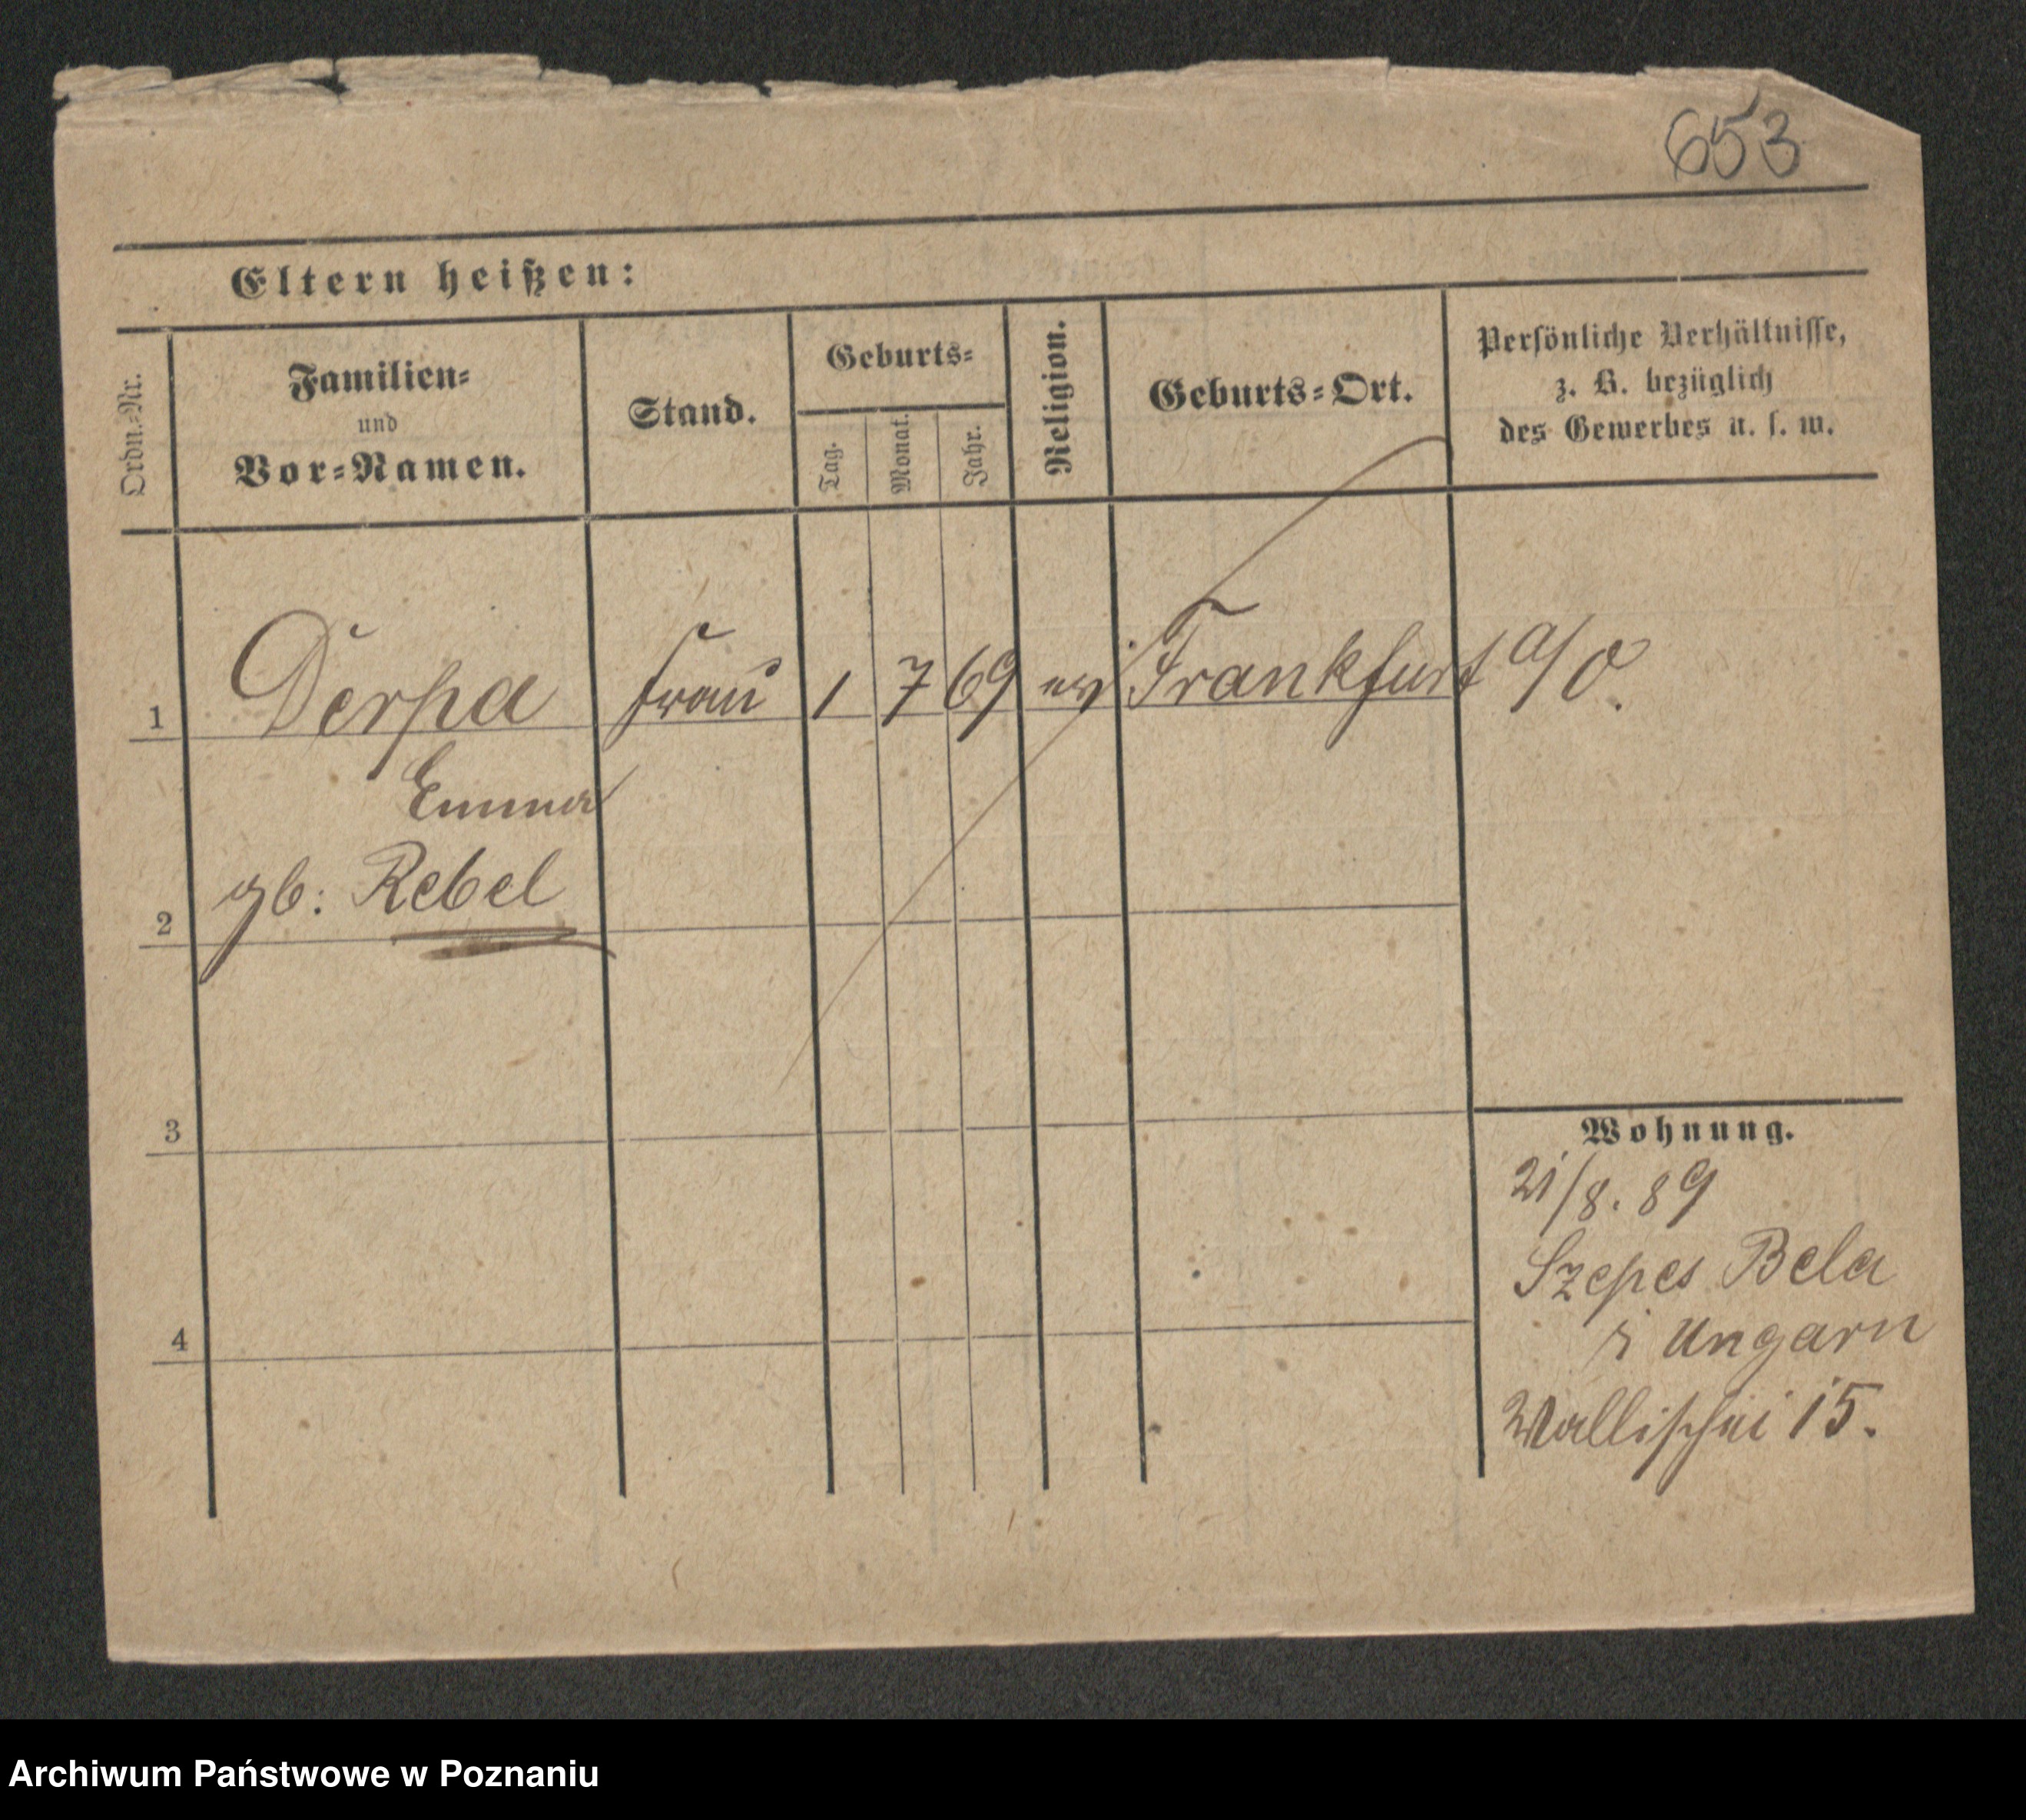 653
Eltern heißen:
Ordn.-Nr.
Familien-
und
Vor-Namen.
Stand.
Geburts-
Tag.
Monat.
Jahr.
Religion.
Geburts-Ort.
Persönliche Verhältnisse,
z. B. bezüglich
des Gewerbes u. s. w.
1 Derpa Frau 1 7 69 ev Frankfurt a/O.
Emma
2 gb: Rebel
3
4
Wohnung.
21/8. 89
Szepes Bela
i Ungarn
Wallischei 15.
Archiwum Państwowe w Poznaniu